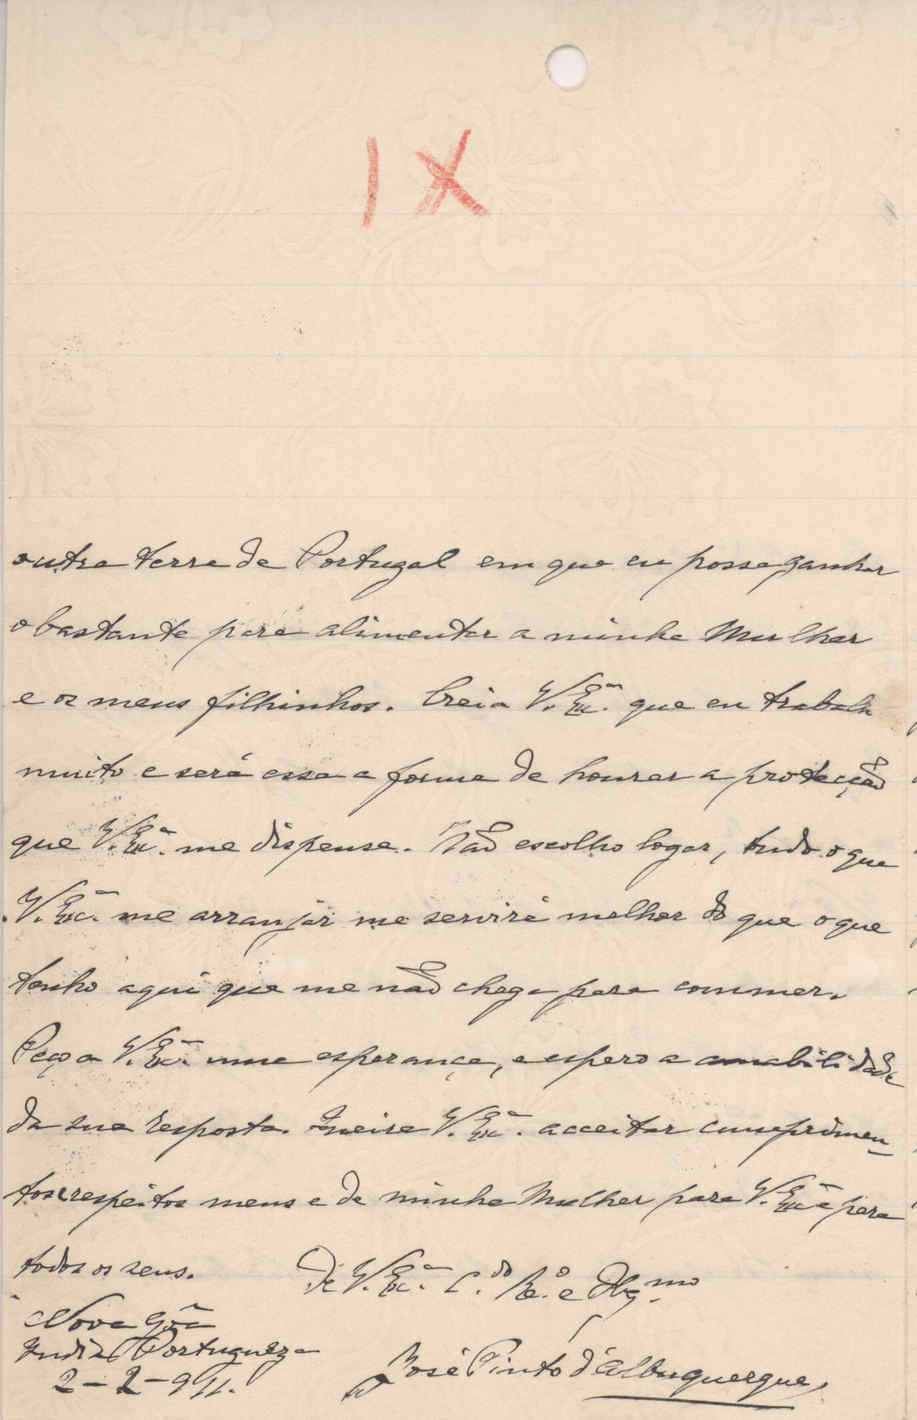 IX
outra terra de Portugal em que eu possa ganhar
o bastante para alimentar a minha Mulher
e os meus filhinhos. Creia V. Exª. que eu trabalho
muito e será essa a forma de honrar a protecção
que V. Exª. me dispense. Não escolho logar, tudo o que
V. Exª. me arranjar me servirá melhor do que o que
tenho aqui que me não chega para commer.
Peço a V. Exª. uma esperança, e espero a amabilidade
da sua resposta. Queira V. Exª. acceitar cumprimen-
tos e respeitos meus e de minha Mulher para V. Exª e para
todos os seus.
De V. Exª. C.do Re.º e Obg.mo
Nova Gôa
India Portugueza
2-2-911.
José Pinto d'Albuquerque,